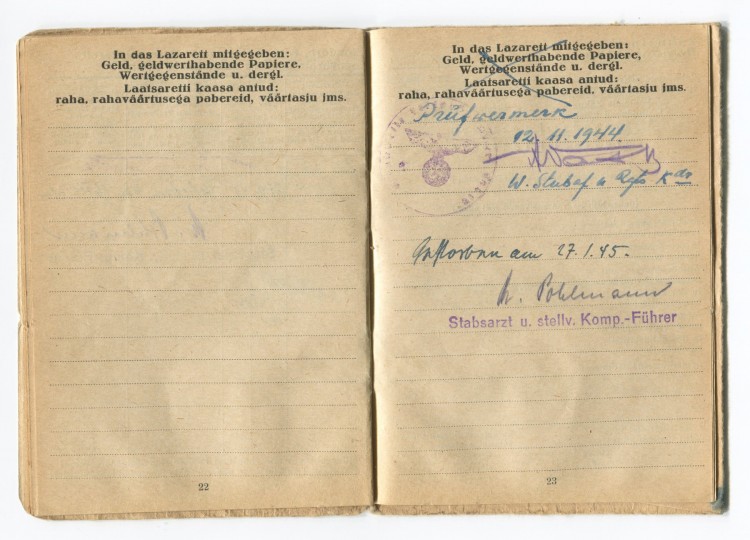 In das Lazarett mitgegeben:
Geld, geldwerthabende Papiere,
Wertgegenstände u. dergl.
Laatsaretti kaasa antud:
raha, rahaväärtusega pabereid, väärtasju jms.
22
In das Lazarett mitgegeben:
Geld, geldwerthabende Papiere,
Wertgegenstände u. dergl.
Laatsaretti kaasa antud:
raha, rahaväärtusega pabereid, väärtasju jms.
Prüfvermerk
12.11.1944.
W. Stubaf u Rgts Kdr
Gestorben am 27.1.45.
Pohlmann
Stabsarzt u. stellv. Komp.-Führer
23